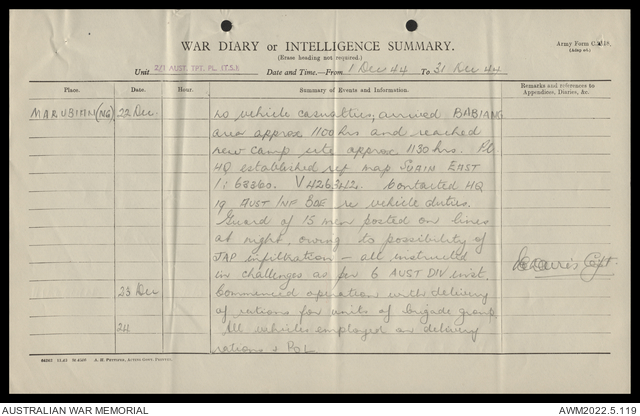 WAR DIARY OR INTELLIGENCE SUMMARY.
(Erase heading not required.)
Army Form C.2118.
(Adapted).
Unit 2/1 AUST. TPT. PL.
Date and Time.—From 1 Dec 44 To 31 Dec 44
Place. Date. Hour. Summary of Events and Information. Remarks and references to Appendices, Diaries, &c.
MARUBIAN (NG) 22 Dec. no vehicle casualties, arrived BABIANG
area approx 1100 hrs and reached
new camp site approx 1130 hrs. Pl
HQ established ref map SUAIN EAST
1:63360. V426342. Contacted HQ
19 AUST INF BDE re vehicle duties.
Guard of 15 men posted on lines
at night, owing to possibility of
JAP infiltration – all instructed
in challenges as per 6 AUST DIV inst.
Capt.
23 Dec Commenced operation with delivery
of rations for units of brigade group
24 All vehicles employed on delivery
rations & POL
A. H. Pettifer, Acting Govt. Printer.
AUSTRALIAN WAR MEMORIAL
AWM2022.5.119